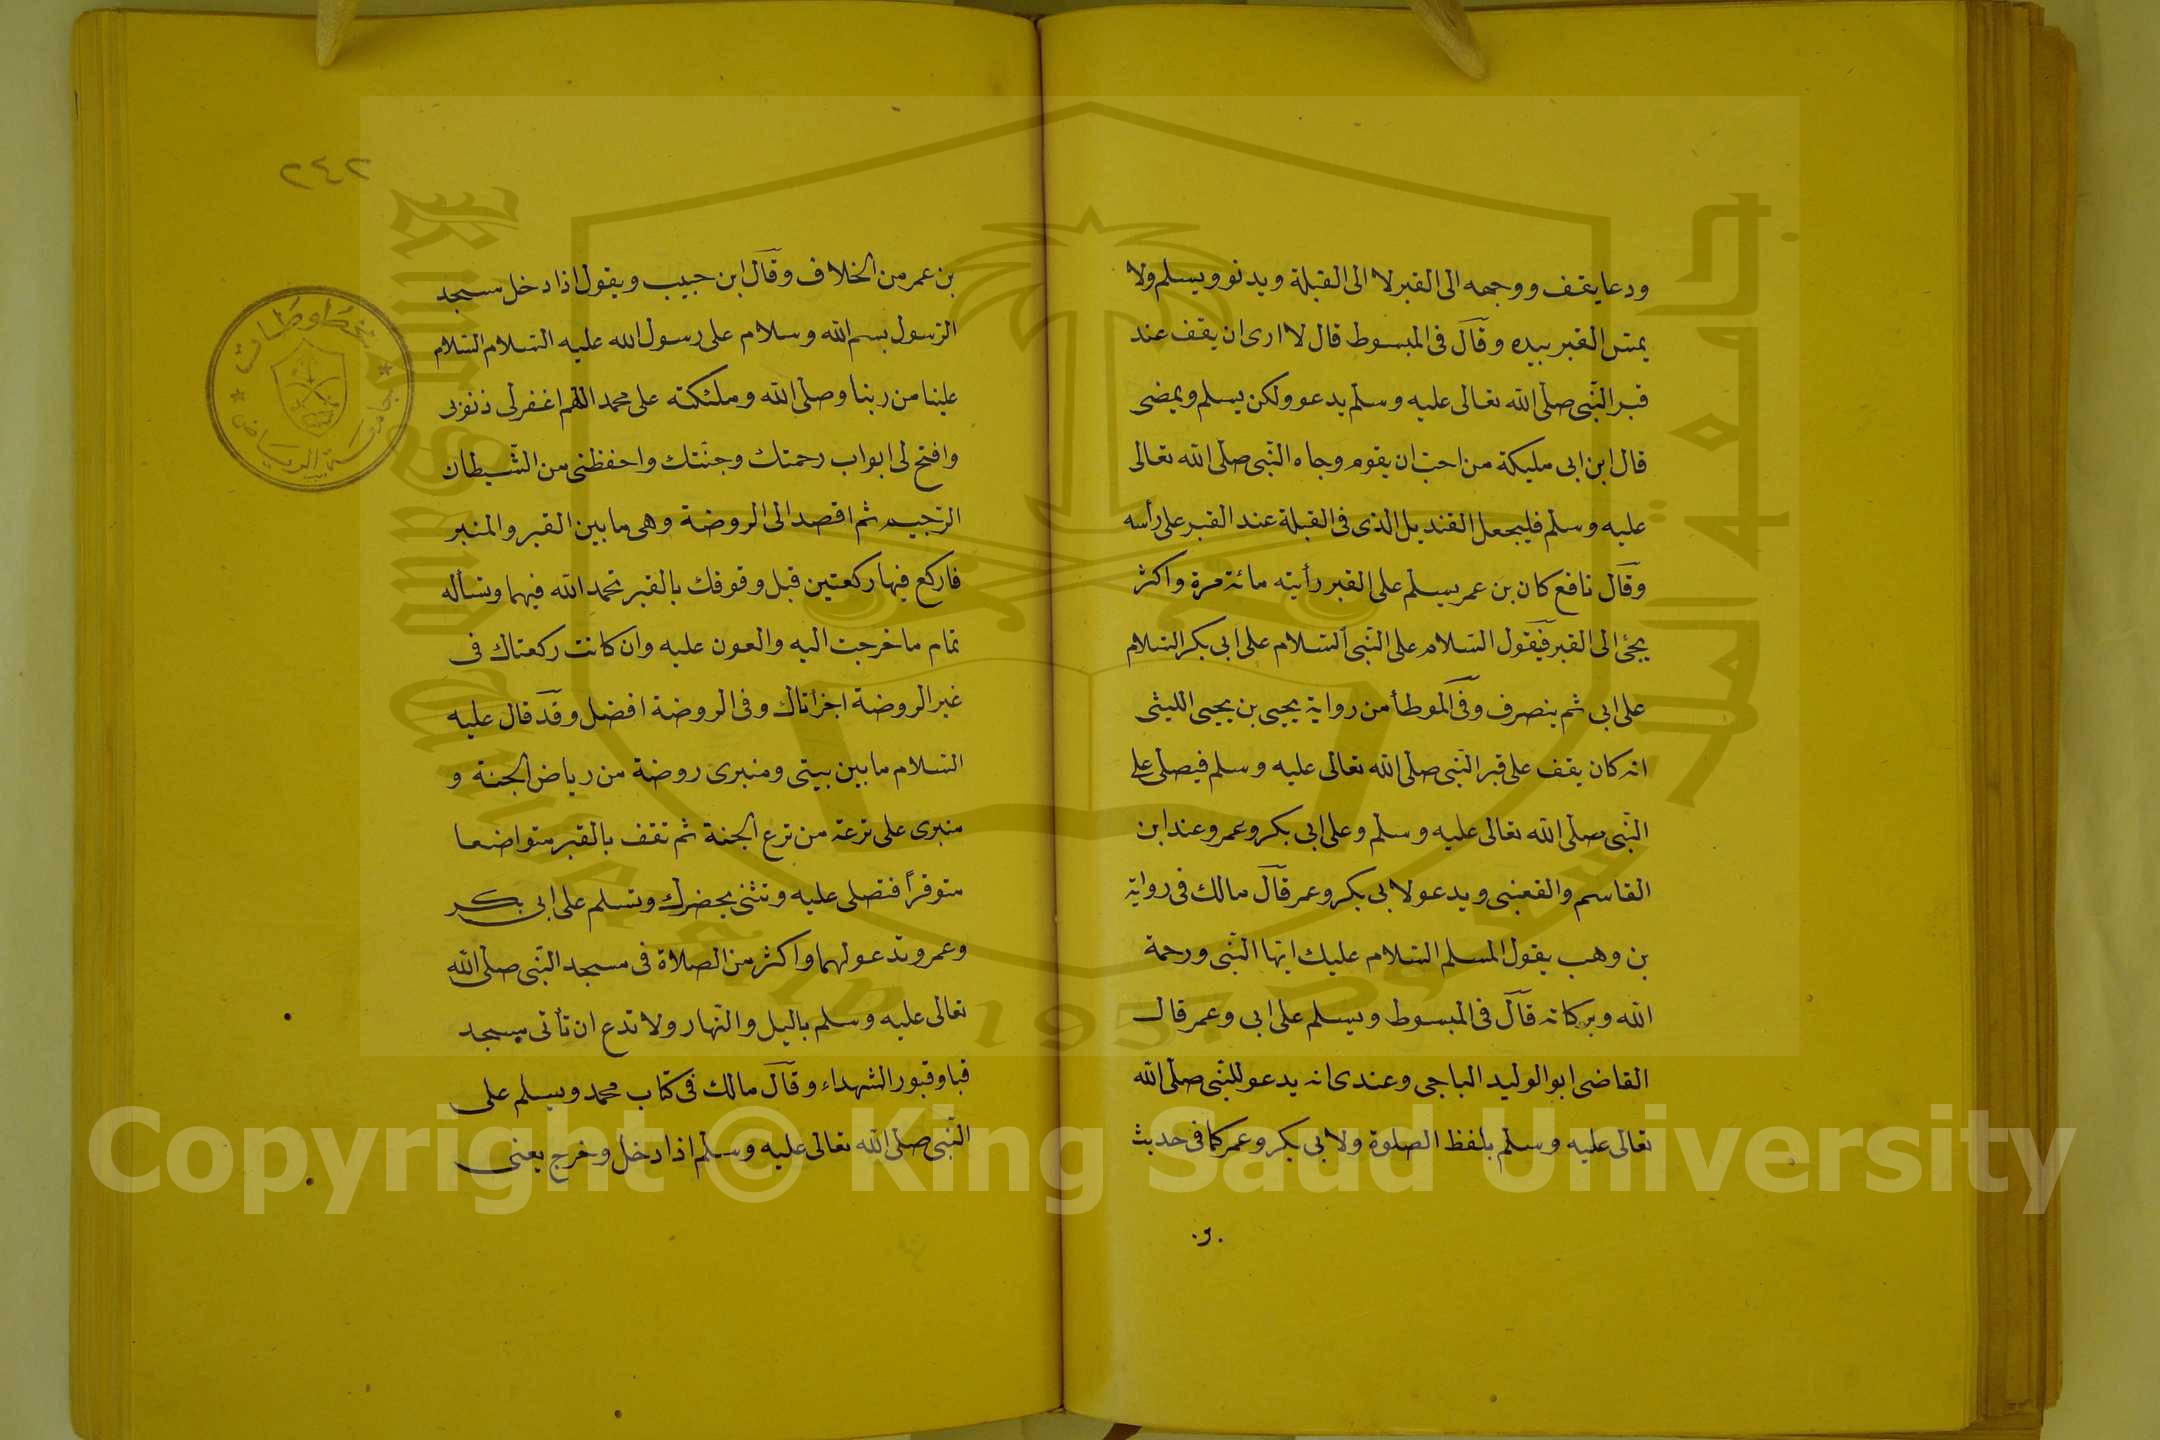 ودعا يقف ووجهه الى القبر لا الى القبلة ويدنو ويسلم ولا
يمس القبر بيده وقال فى المبسوط قال لا ارى ان يقف عند
قبر النبى صلى الله تعالى عليه وسلم يدعو ولكن يسلم ويمضى
قال ابن ابى مليكة من احب ان يقوم وجاه النبى صلى الله تعالى
عليه وسلم فليجعل القنديل الذى فى القبلة عند القبر على رأسه
وقال نافع كان بن عمر يسلم على القبر رأيته مائة مرة واكثر
يجئ الى القبر فيقول السلام على النبى السلام على ابى بكر السلام
على ابى ثم ينصرف وفى الموطأ من رواية يحيى بن يحيى الليثى
انه كان يقف على قبر النبى صلى الله تعالى عليه وسلم فيصلى على
النبى صلى الله تعالى عليه وسلم وعلى ابى بكر وعمر وعند ابن
القاسم والقعنبى ويدعو لابى بكر وعمر قال مالك فى رواية
بن وهب يقول المسلم السلام عليك ايها النبى ورحمة
الله وبركاته قال فى المبسوط ويسلم على ابى وعمر قال
القاضى ابو الوليد الباجى وعندى انه يدعو للنبى صلى الله
تعالى عليه وسلم بلفظ الصلوة ولابى بكر وعمر كما فى حديث
٢٤٢
بن عمر من الخلاف وقال ابن حبيب ويقول اذا دخل مسجد
الرسول بسم الله وسلام على رسول الله عليه السلام السلام
علينا من ربنا وصلى الله وملئكته على محمد اللهم اغفر لى ذنوبى
وافتح لى ابواب رحمتك وجنتك واحفظنى من الشيطان
الرجيم ثم اقصد الى الروضة وهى ما بين القبر والمنبر
فاركع فيها ركعتين قبل وقوفك بالقبر تحمد الله فيهما وتسأله
تمام ما خرجت اليه والعون عليه وان كانت ركعتاك فى
غير الروضة اجزأتاك وفى الروضة افضل وقد قال عليه
السلام ما بين بيتى ومنبرى روضة من رياض الجنة و
منبرى على ترعة من ترع الجنة ثم تقف بالقبر متواضعا
متوقرا فتصلى عليه وتثنى بحضرك وتسلم على ابى بكر
وعمر وتدعو لهما واكثر من الصلاة فى مسجد النبى صلى الله
تعالى عليه وسلم باليل والنهار ولا تدع ان تأتى مسجد
قبا وقبور الشهداء وقال مالك فى كتاب محمد ويسلم على
النبى صلى الله تعالى عليه وسلم اذا دخل وخرج يعنى
جامعة الرياض
مخطوطات
جامعة الملك سعود
King Saud University
1957
Copyright © King Saud University